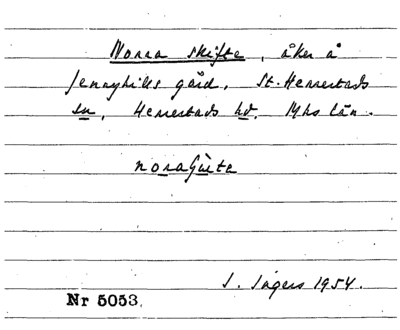 Norra skifte, åker å
Jennyhills gård, St. Herrestads
sn, Herrestads hd. Mhs län.
noraſjùte
J. Sågers 1954.
Nr 5053.